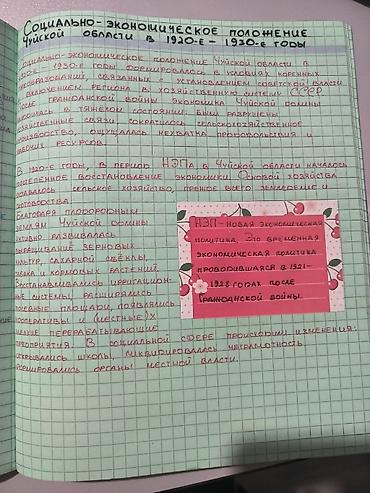 Социально-экономическое положение
Чуйской области в 1920-е - 1930-е годы
Социально-экономическое положение Чуйской области в
1920-е - 1930-е годы формировалось в условиях коренных
преобразований, связанных с установлением советской власти
включением региона в хозяйственную систему СССР
после гражданской войны экономика Чуйской долины
находилась в тяжелом состоянии. Были разрушены
хозяйственные связи, сократилось сельскохозяйственное
производство, ощущалась нехватка продовольствия и
ресурсов.
В 1920-е годы, в период НЭПа, в Чуйской области началось
постепенное восстановление экономики. Основой хозяйства
оставалось сельское хозяйство, прежде всего земледелие и
животноводство.
Благодаря плодородным
землям Чуйской долины
активно развивалась
выращивание зерновых
культур, сахарной свёклы,
и кормовых растений.
Восстанавливались ирригацион-
ные системы, расширялись
посевные площади, появлялись
кооперативы и (местные)х
мелкие перерабатывающие
предприятия. В социальной сфере происходили изменения:
открывались школы, ликвидировалась неграмотность,
формировались органы местной власти.
НЭП-новая экономическая
политика. Это временная
экономическая политика
проводившаяся в 1921-
1928 годах после
Гражданской войны.